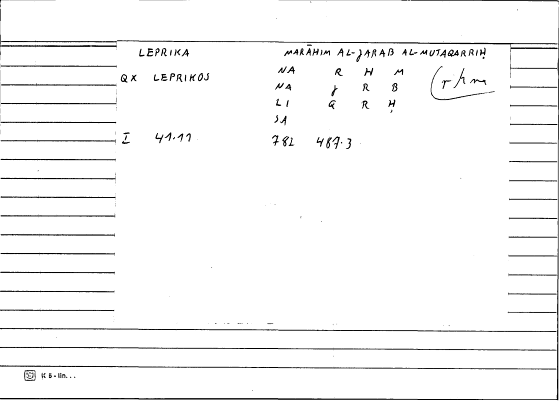 LEPRIKA MARĀHIM AL-JARAB AL-MUTAQARRIḤ
QX LEPRIKOS NA R H M rhm
NA J R B
LI Q R Ḥ
SA
I 41.11 782 487.3